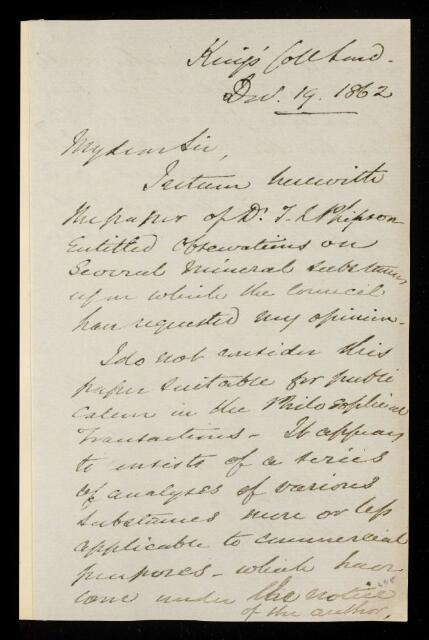 King's Coll Lond.
Dec. 19. 1862
My dear Sir,
I return herewith
the paper of Dr. T. L. Phipson
Entitled Observations on
Several mineral substances
upon which the Council
has requested my opinion.
I do not consider this
paper suitable for publi
cation in the Philosophical
Transactions. It appears
to consist of a series
of analyses of various
substances more or less
applicable to commercial
purposes - which have
come under the notice
of the author.